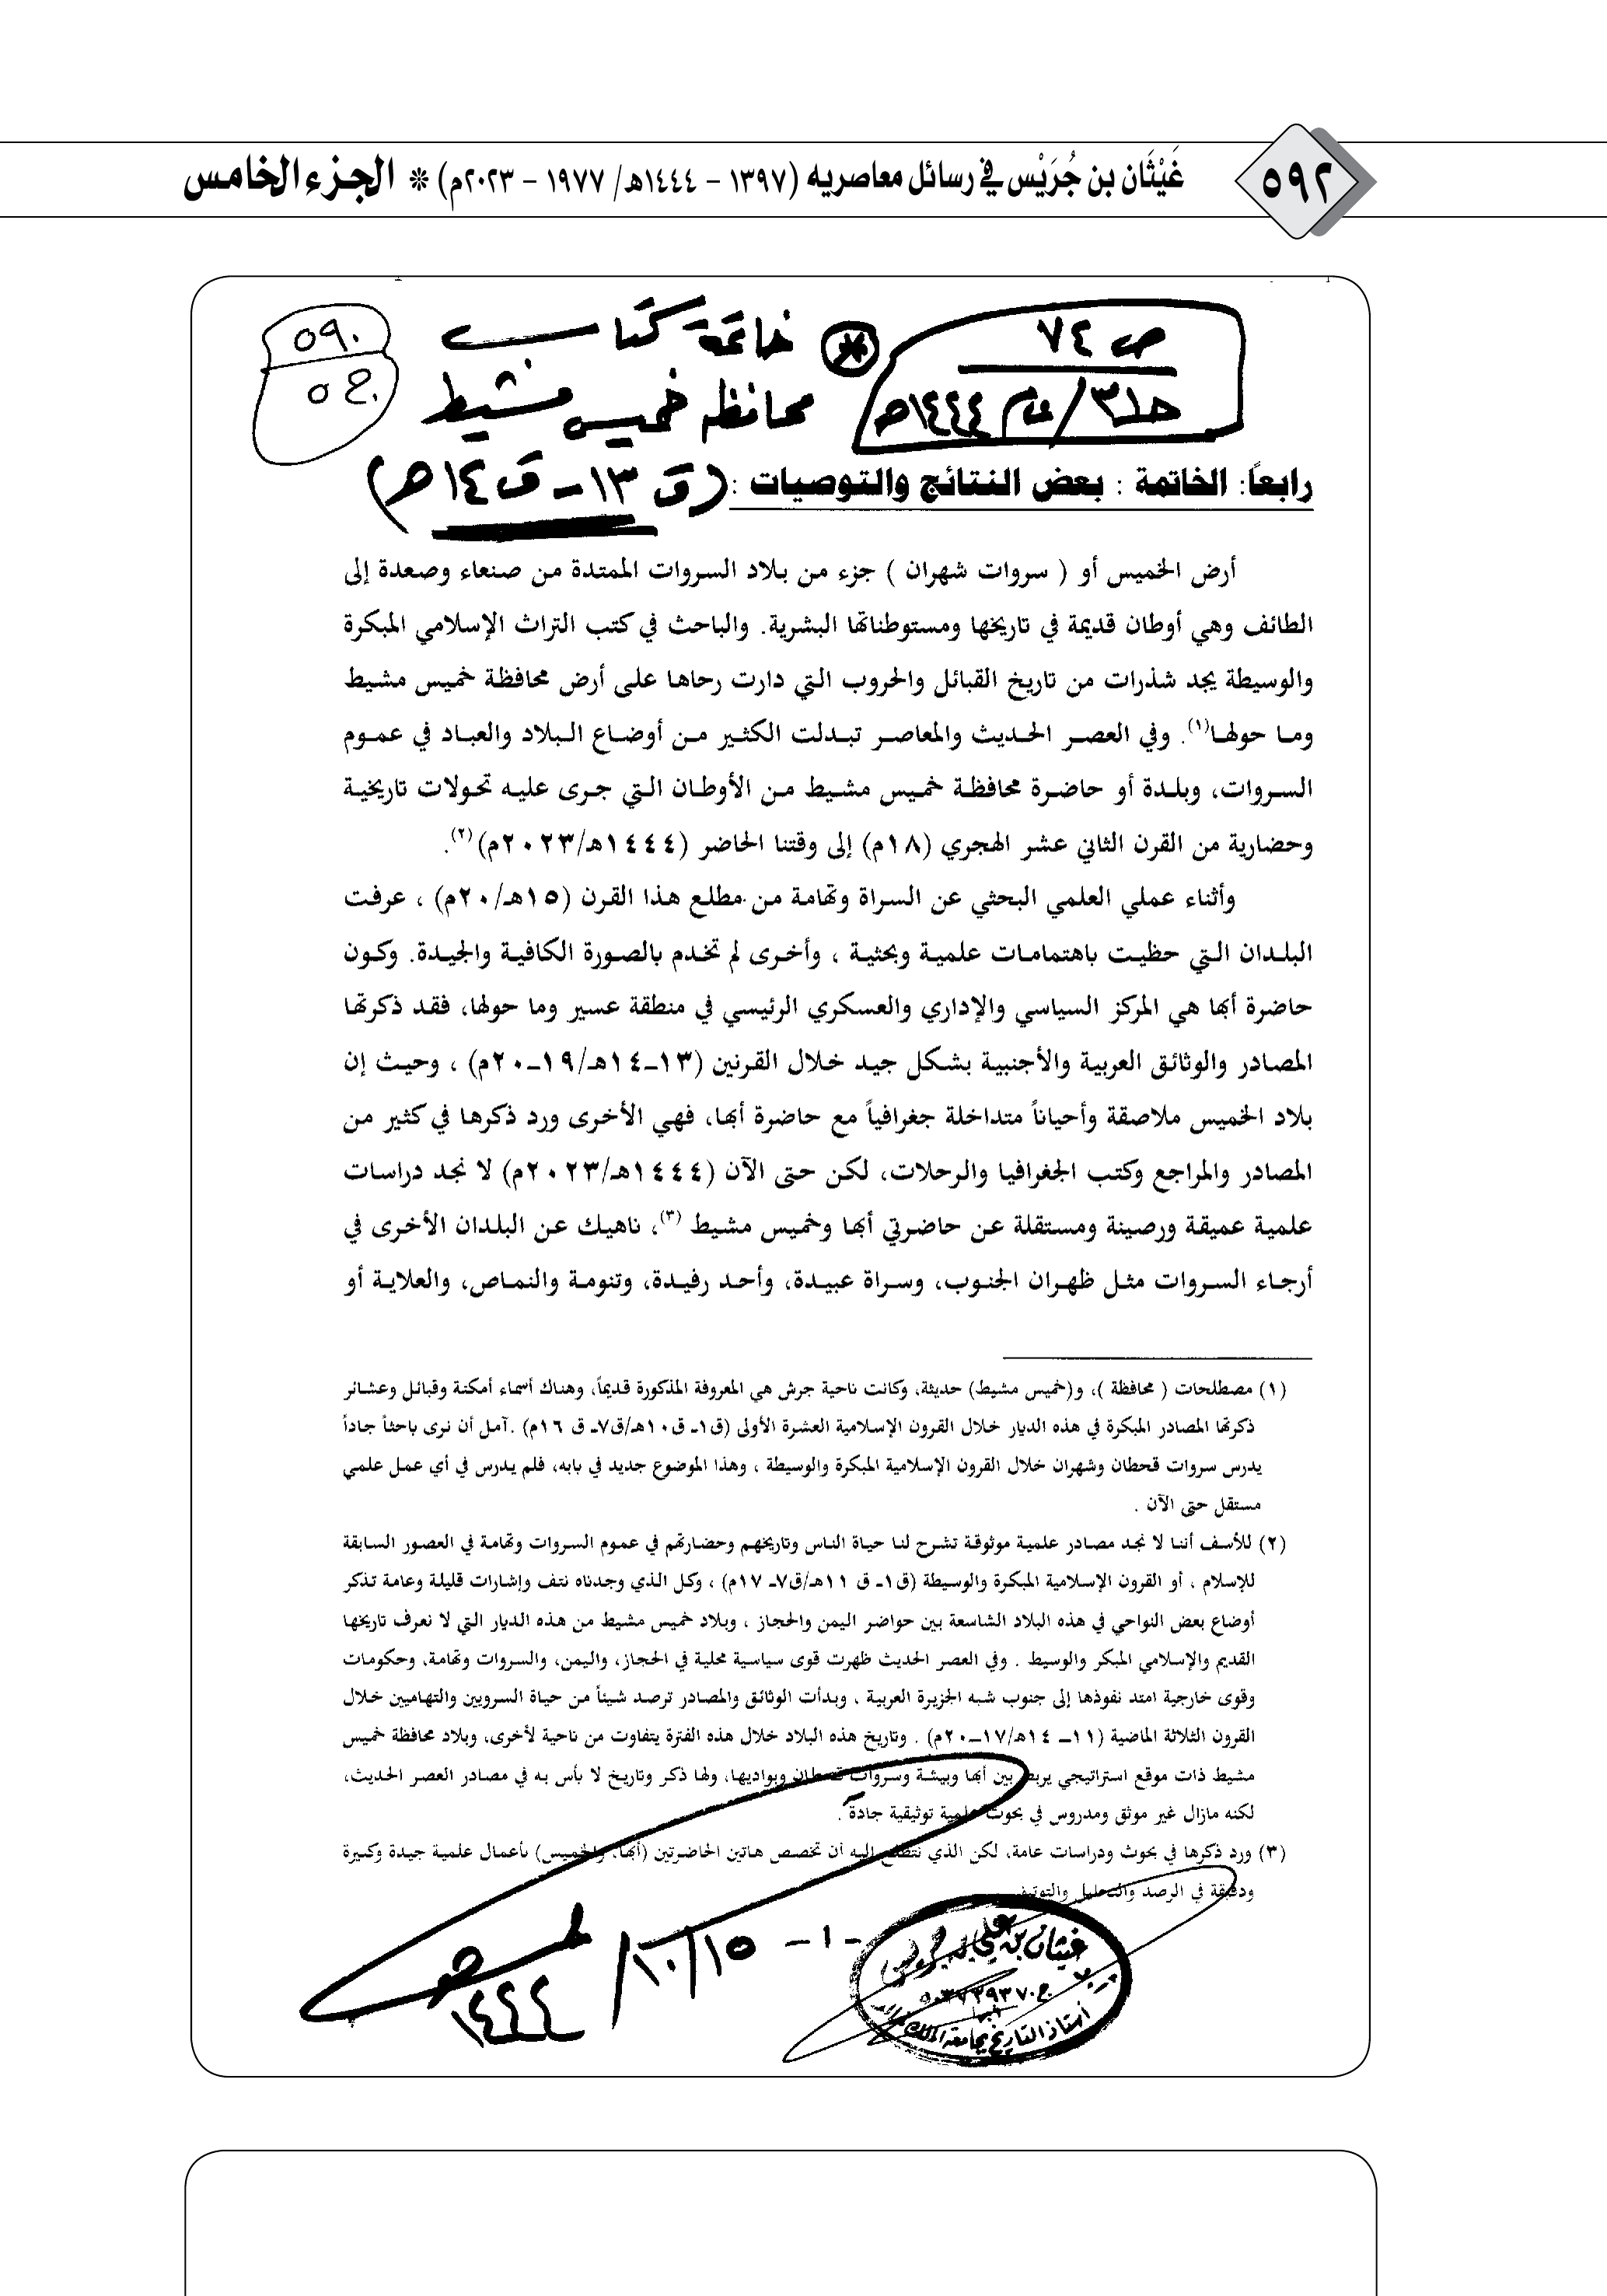 ٥٩٢
غَيْثَان بن جُرَيْس في رسائل معاصريه (١٣٩٧ - ١٤٤٤هـ/ ١٩٧٧ - ٢٠٢٣م) * الجزء الخامس
ص ٧٤
خاتمة كتاب
٥٩٠
محافظة خميس مشيط
عام ١٤٤٤هـ
رابعاً: الخاتمة : بعض النتائج والتوصيات : (ق ١٣ - ق ١٤هـ)
أرض الخميس أو ( سروات شهران ) جزء من بلاد السروات الممتدة من صنعاء وصعدة إلى
الطائف وهي أوطان قديمة في تاريخها ومستوطناتها البشرية. والباحث في كتب التراث الإسلامي المبكرة
والوسيطة يجد شذرات من تاريخ القبائل والحروب التي دارت رحاها على أرض محافظة خميس مشيط
وما حولها(١). وفي العصر الحديث والمعاصر تبدلت الكثير من أوضاع البلاد والعباد في عموم
السروات، وبلدة أو حاضرة محافظة خميس مشيط من الأوطان التي جرى عليه تحولات تاريخية
وحضارية من القرن الثاني عشر الهجري (١٨م) إلى وقتنا الحاضر (١٤٤٤هـ/٢٠٢٣م)(٢).
وأثناء عملي العلمي البحثي عن السراة وتهامة من مطلع هذا القرن (١٥هـ/٢٠م) ، عرفت
البلدان التي حظيت باهتمامات علمية وبحثية ، وأخرى لم تخدم بالصورة الكافية والجيدة. وكون
حاضرة أبها هي المركز السياسي والإداري والعسكري الرئيسي في منطقة عسير وما حولها، فقد ذكرتها
المصادر والوثائق العربية والأجنبية بشكل جيد خلال القرنين (١٣ـ١٤هـ/١٩ـ٢٠م) ، وحيث إن
بلاد الخميس ملاصقة وأحياناً متداخلة جغرافياً مع حاضرة أبها، فهي الأخرى ورد ذكرها في كثير من
المصادر والمراجع وكتب الجغرافيا والرحلات، لكن حتى الآن (١٤٤٤هـ/٢٠٢٣م) لا نجد دراسات
علمية عميقة ورصينة ومستقلة عن حاضرتي أبها وخميس مشيط (٣)، ناهيك عن البلدان الأخرى في
أرجاء السروات مثل ظهران الجنوب، وسراة عبيدة، وأحد رفيدة، وتنومة والنماص، والعلاية أو
(١) مصطلحات ( محافظة )، و(خميس مشيط) حديثة، وكانت ناحية جرش هي المعروفة المذكورة قديماً، وهناك أسماء أمكنة وقبائل وعشائر
ذكرتها المصادر المبكرة في هذه الديار خلال القرون الإسلامية العشرة الأولى (ق١ـ ق١٠هـ/ق٧ـ ق ١٦م) .آمل أن نرى باحثاً جاداً
يدرس سروات قحطان وشهران خلال القرون الإسلامية المبكرة والوسيطة ، وهذا الموضوع جديد في بابه، فلم يدرس في أي عمل علمي
مستقل حتى الآن .
(٢) للأسف أننا لا نجد مصادر علمية موثوقة تشرح لنا حياة الناس وتاريخهم وحضارتهم في عموم السروات وتهامة في العصور السابقة
للإسلام ، أو القرون الإسلامية المبكرة والوسيطة (ق١ـ ق ١١هـ/ق٧ـ ١٧م) ، وكل الذي وجدناه نتف وإشارات قليلة وعامة تذكر
أوضاع بعض النواحي في هذه البلاد الشاسعة بين حواضر اليمن والحجاز ، وبلاد خميس مشيط من هذه الديار التي لا نعرف تاريخها
القديم والإسلامي المبكر والوسيط . وفي العصر الحديث ظهرت قوى سياسية محلية في الحجاز، واليمن، والسروات وتهامة، وحكومات
وقوى خارجية امتد نفوذها إلى جنوب شبه الجزيرة العربية ، وبدأت الوثائق والمصادر ترصد شيئاً من حياة السرويين والتهاميين خلال
القرون الثلاثة الماضية (١١ـ ١٤هـ/١٧ـ٢٠م) . وتاريخ هذه البلاد خلال هذه الفترة يتفاوت من ناحية لأخرى، وبلاد محافظة خميس
مشيط ذات موقع استراتيجي يربط بين أبها وبيشة وسروات قحطان وبواديها، ولها ذكر وتاريخ لا بأس به في مصادر العصر الحديث،
لكنه مازال غير موثق ومدروس في بحوث علمية توثيقية جادة .
(٣) ورد ذكرها في بحوث ودراسات عامة، لكن الذي نتطلع إليه أن تخصص هاتين الحاضرتين (أبها، والخميس) بأعمال علمية جيدة وكبيرة
ودقيقة في الرصد والتحليل والتوثيق
-١-
١٥/١٠/
١٤٤٤هـ
غيثان بن علي بن جريس
أستاذ التاريخ بجامعة الملك خالد